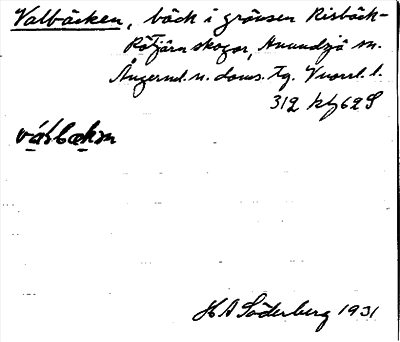 Valbäcken, bäck i gränsen Risbäck-
Rötjärn skogar, Anundsjö sn.
Ångerml. n. doms. tg. Vnorrl. l.
312 kf 62 S
H A Söderberg 1931